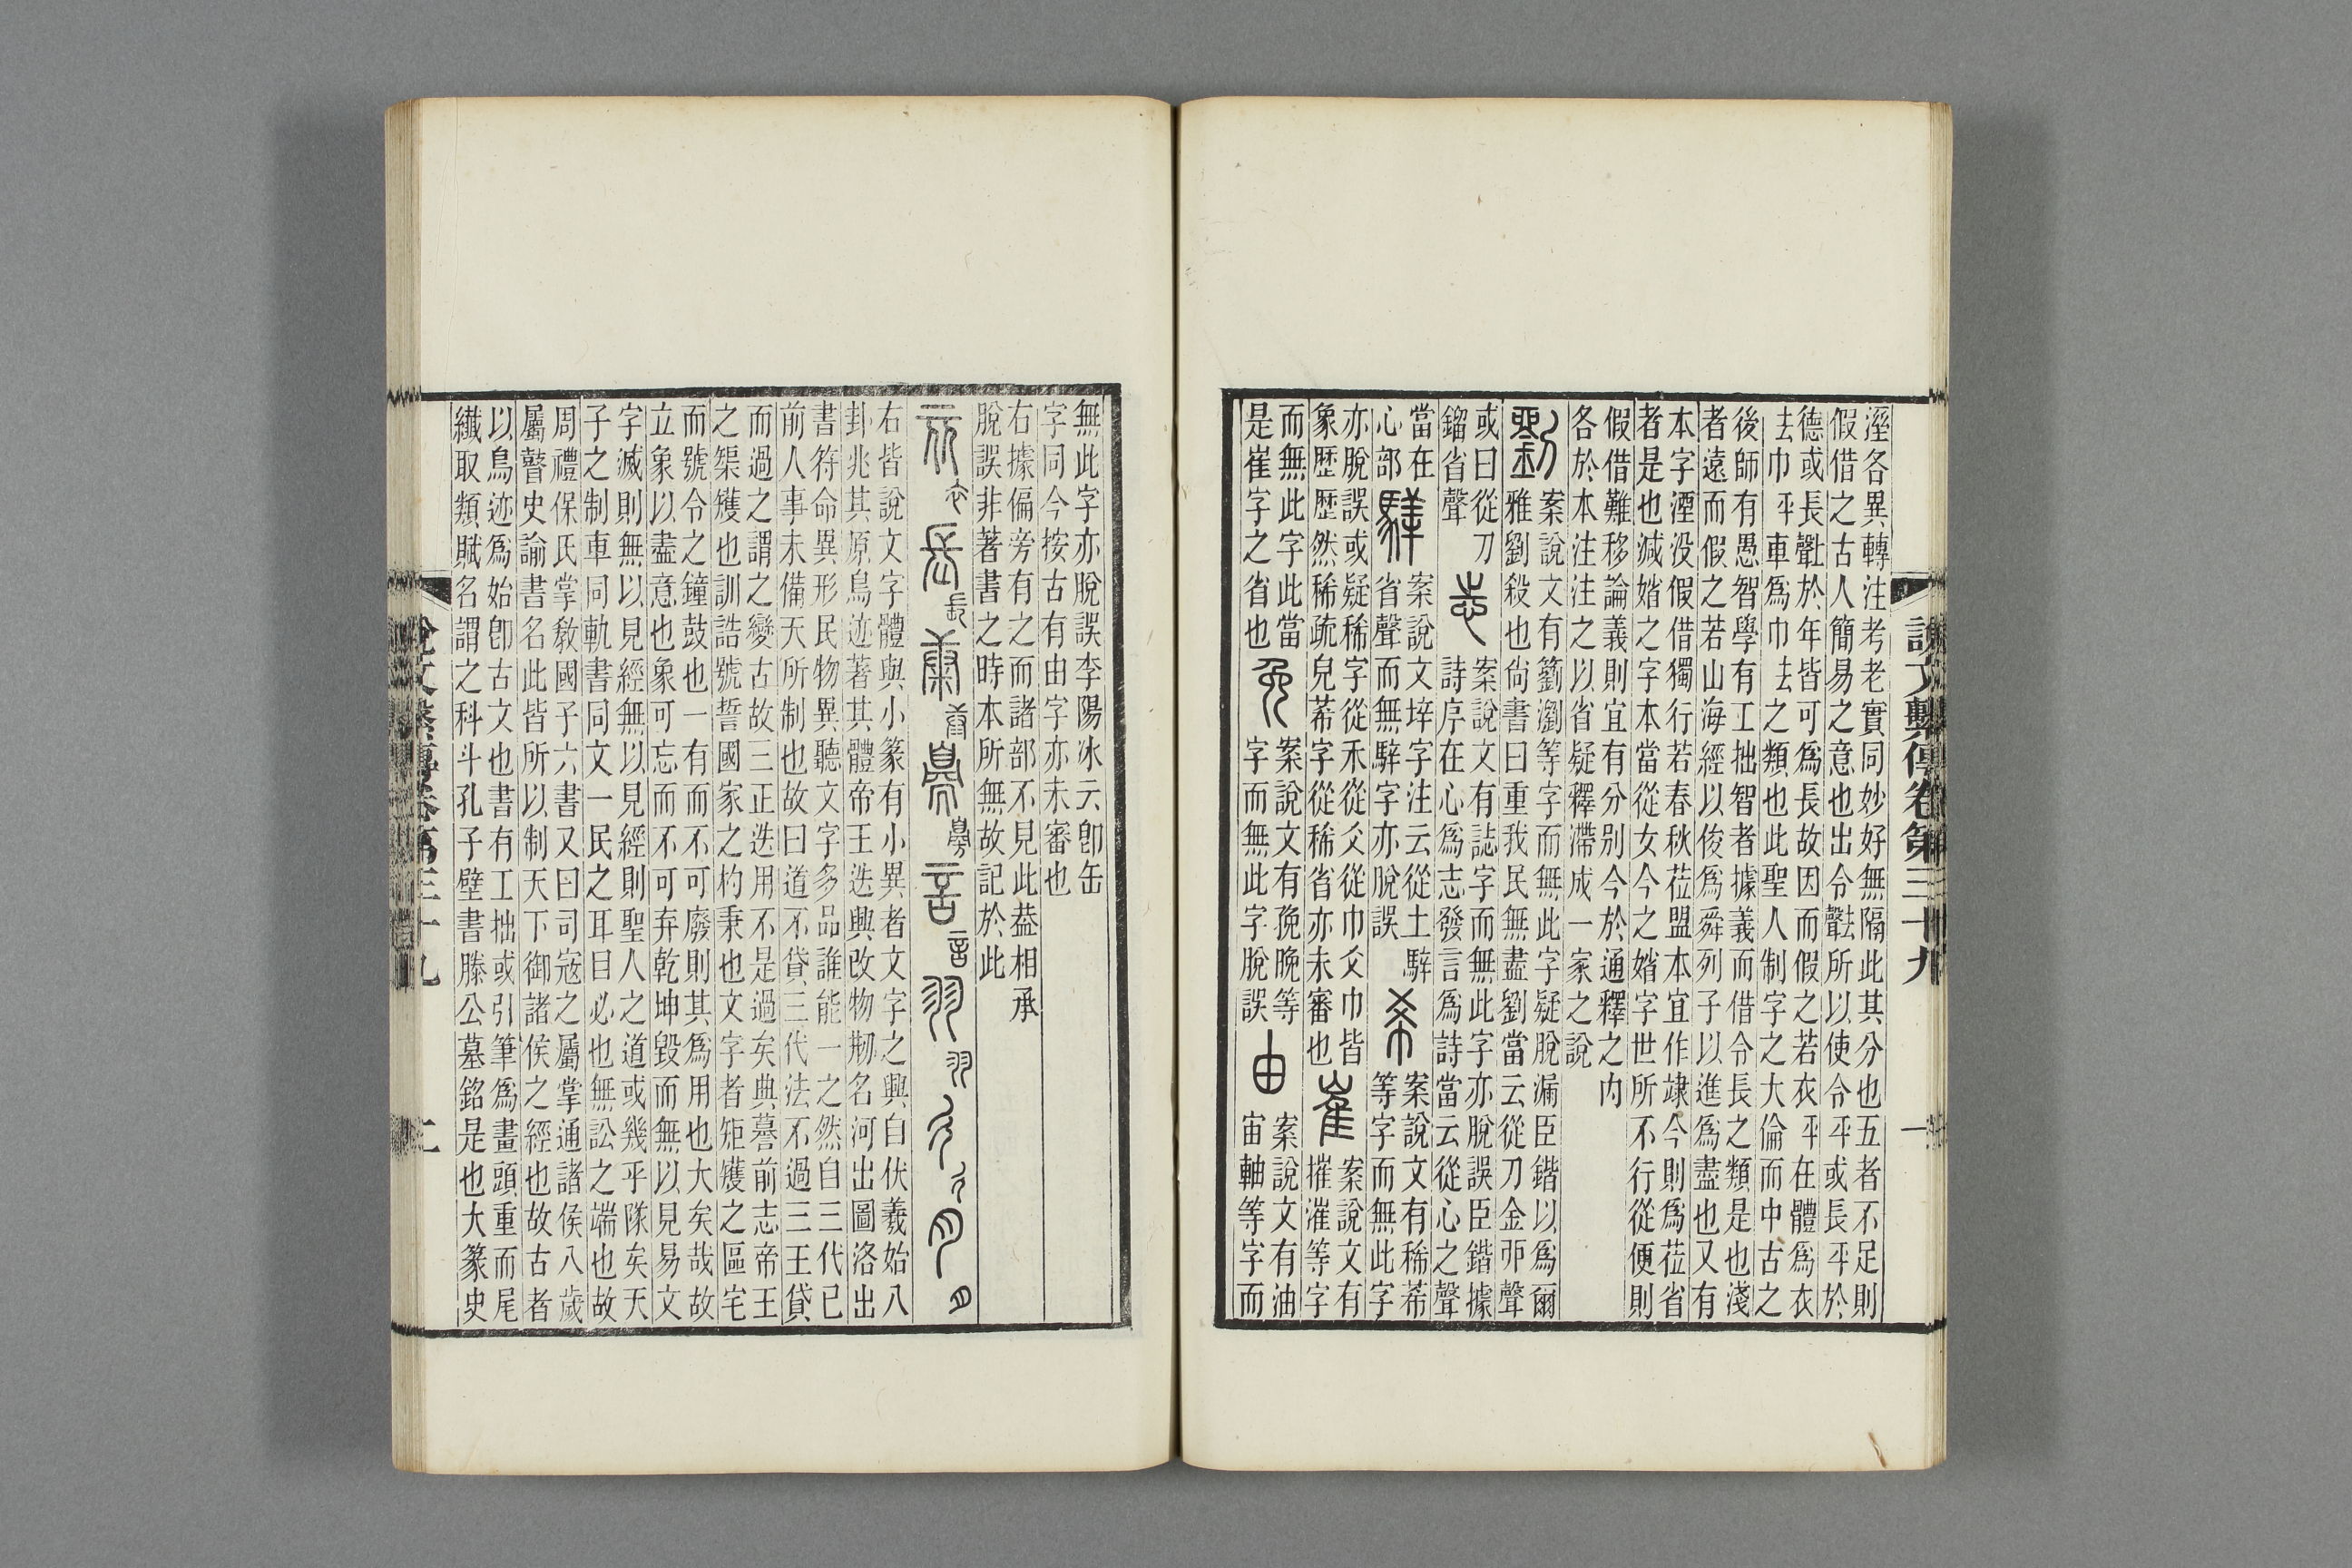 說文繫傳卷第三十九　一
溼各異轉注考老實同妙好無隔此其分也五者不足則
假借之古人簡易之意也出令聲去所以使令平或長平於
德或長聲上於年皆可爲長故因而假之若衣平在體爲衣
去巾平車爲巾去之類也此聖人制字之大倫而中古之
後師有愚智學有工拙智者據義而借令長之類是也淺
者遠而假之若山海經以俊爲舜列子以進爲盡也又有
本字湮没假借獨行若春秋莅盟本宜作今則爲莅省
者是也減媘之字本當從女今之媘字世所不行從便則
假借難移論義則宜有分別今於通釋之内
各於本注注之以省疑釋滯成一家之說
劉 案說文有籀瀏等字而無此字疑脫漏臣鍇以爲爾
雅劉殺也尙書曰重我民無盡劉當云從刀金丣聲
或曰從刀
鎦省聲
志 案說文有誌字而無此字亦脫誤臣鍇據
詩序在心爲志發言爲詩當云從心之聲
當在
心部
騂 案說文垶字注云從土騂
省聲而無騂字亦脫誤
希 案說文有稀莃
等字而無此字
亦脫誤或疑稀字從禾從爻從巾爻巾皆
象歷歷然稀疏皃莃字從稀省亦未審也
崔 案說文有
摧漼等字
而無此字此當
是崔字之省也
免 案說文有㝃晚等
字而無此字脫誤
由 案說文有油
宙軸等字而
無此字亦脫誤李陽冰云卽缶
字同今按古有由字亦未審也
右據偏旁有之而諸部不見此葢相承
脫誤非著書之時本所無故記於此
衣 長 言 羽
右皆說文字體與小篆有小異者文字之興自伏羲始八
卦兆其原鳥迹著其體帝王迭興改物刱名河出圖洛出
書符命異形民物異聽文字多品誰能一之然自三代已
前人事未備天所制也故曰道不貸三代法不過三王貸
而過之謂之變古故三正迭用不是過矣典謩前志帝王
之榘矱也訓誥號誓國家之杓秉也文字者矩矱之區宅
而號令之鐘鼓也一有而不可廢則其爲用也大矣哉故
立象以盡意也象可忘而不可弃乾坤毀而無以見易文
字滅則無以見經無以見經則聖人之道或幾乎隊矣天
子之制車同軌書同文一民之耳目必也無訟之端也故
周禮保氏掌敎國子六書又曰司寇之屬掌通諸侯八歲
屬瞽史諭書名此皆所以制天下御諸侯之經也故古者
以鳥迹爲始卽古文也書有工拙或引筆爲畫頭重而尾
纖取類賦名謂之科斗孔子壁書滕公墓銘是也大篆史
說文繫傳卷第三十九　二